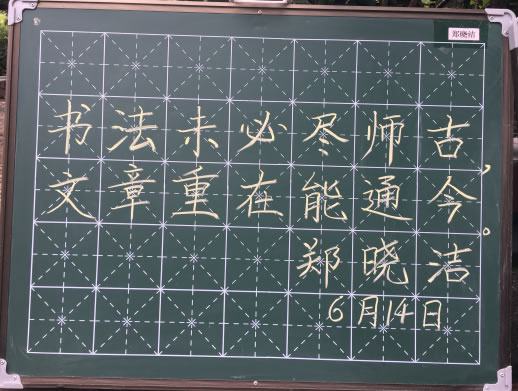 郑晓洁
书法未必尽师古，
文章重在能通今。
郑晓洁
6月14日